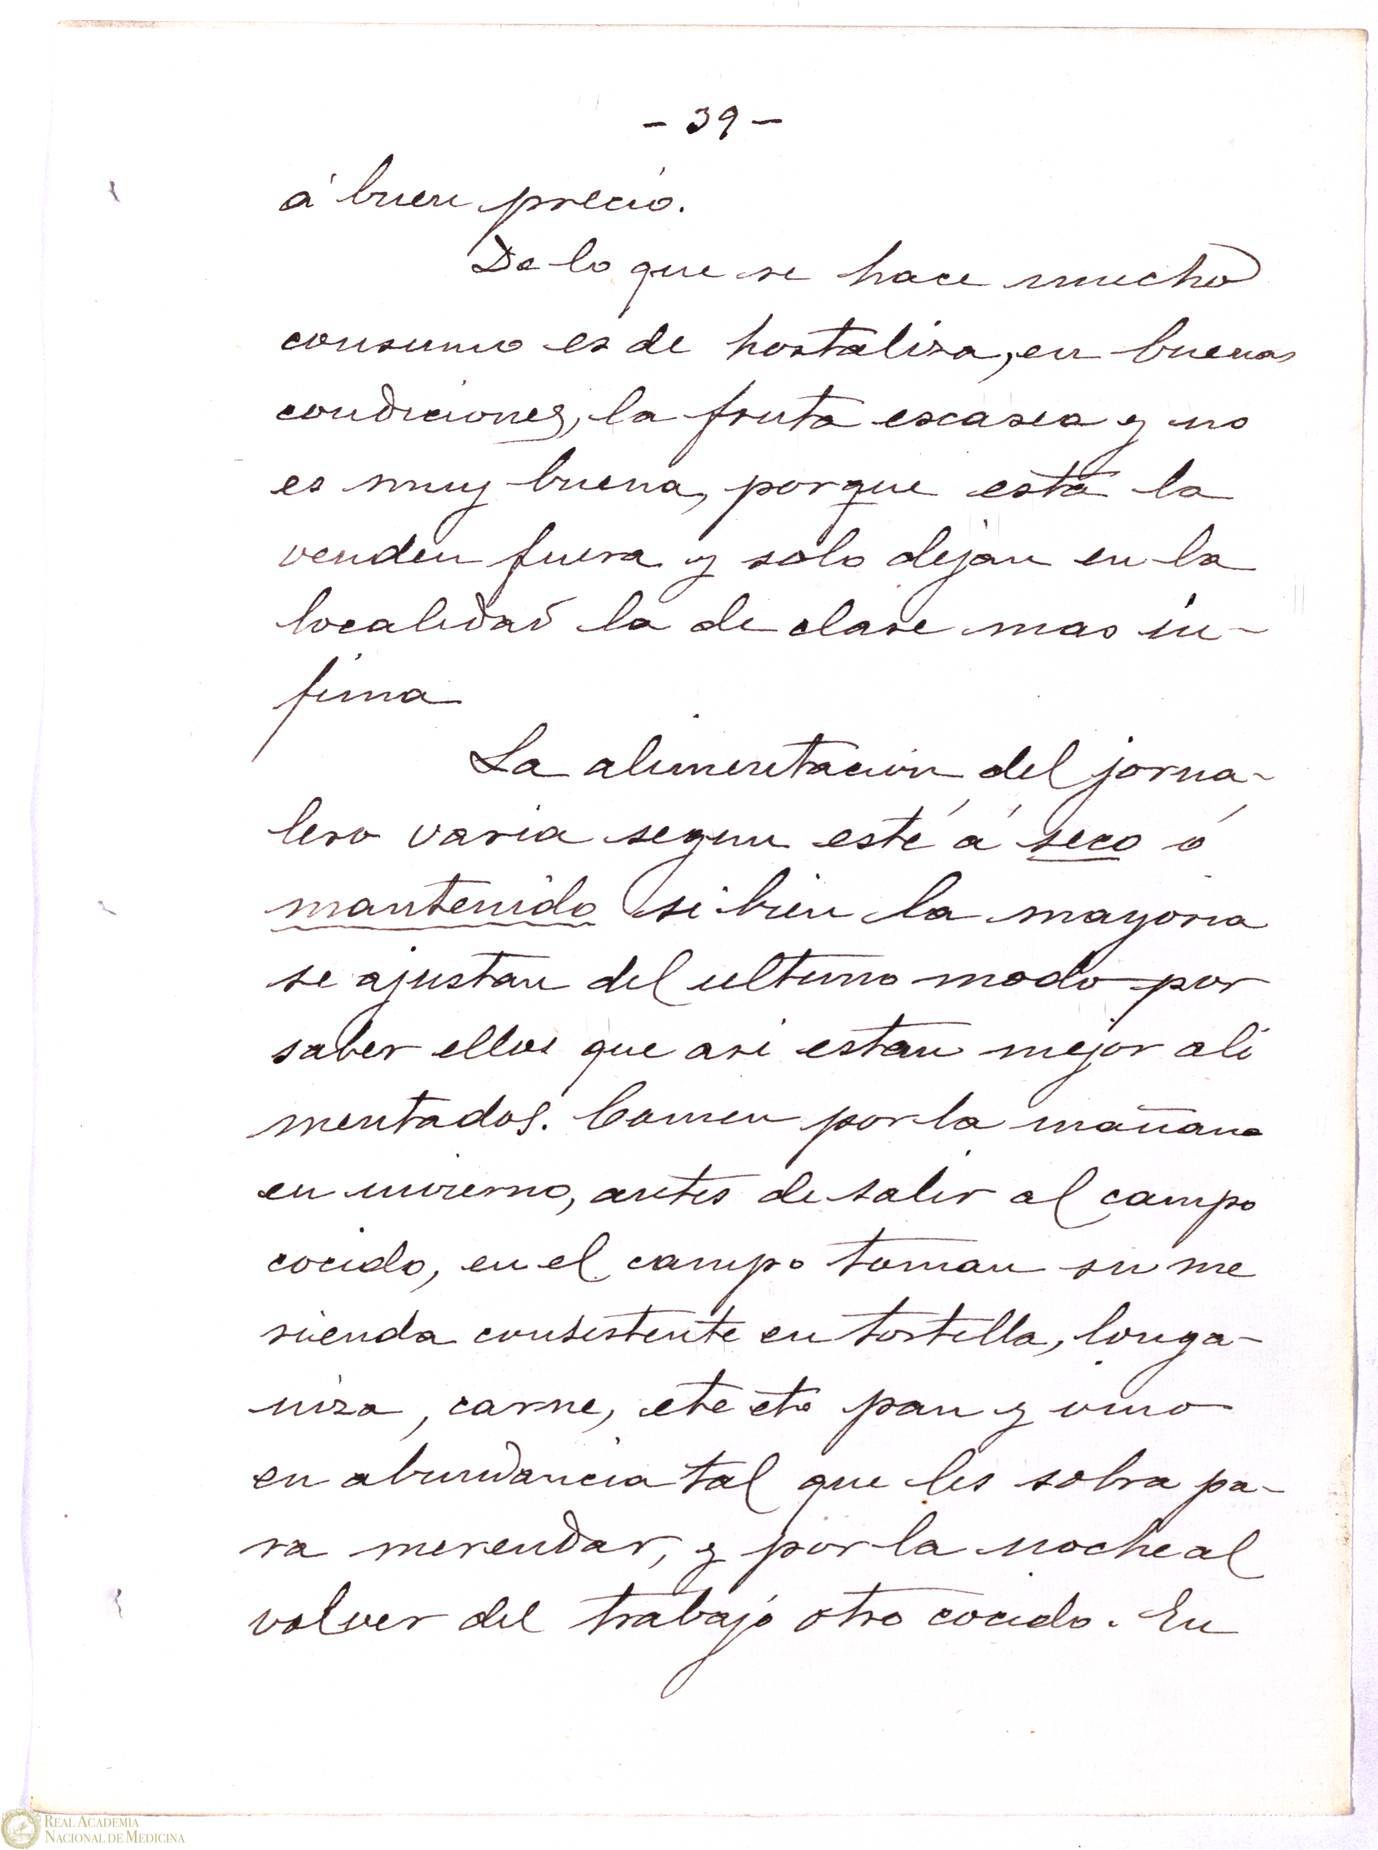 - 39 -
á buen precio.
De lo que se hace mucho
consumo es de hortaliza, en buenas
condiciones, la fruta escasea y no
es muy buena, porque esta la
venden fuera y solo dejan en la
localidad la de clase mas in-
fima
La alimentacion del jorna-
lero varia segun esté á seco ó
mantenido si bien la mayoria
se ajustan del ultimo modo por
saber ellos que asi estan mejor ali
mentados. Comen por la mañana
en invierno, antes de salir al campo
cocido, en el campo toman su me
rienda consistente en tortilla, longa-
niza, carne, etc etc pan y vino
en abundancia tal que les sobra pa-
ra merendar, y por la noche al
volver del trabajo otro cocido. En
REAL ACADEMIA
NACIONAL DE MEDICINA